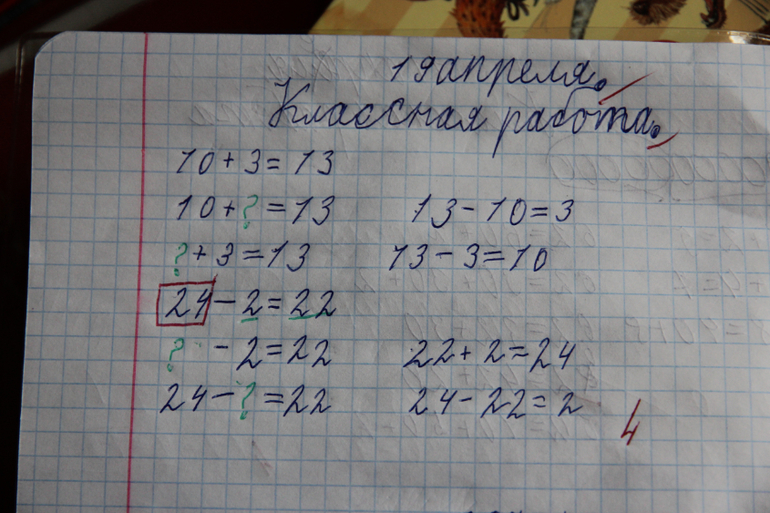 19 апреля.
Классная работа.
10 + 3 = 13
10 + ? = 13 13 - 10 = 3
? + 3 = 13 13 - 3 = 10
24 - 2 = 22
? - 2 = 22 22 + 2 = 24
24 - ? = 22 24 - 22 = 2
4